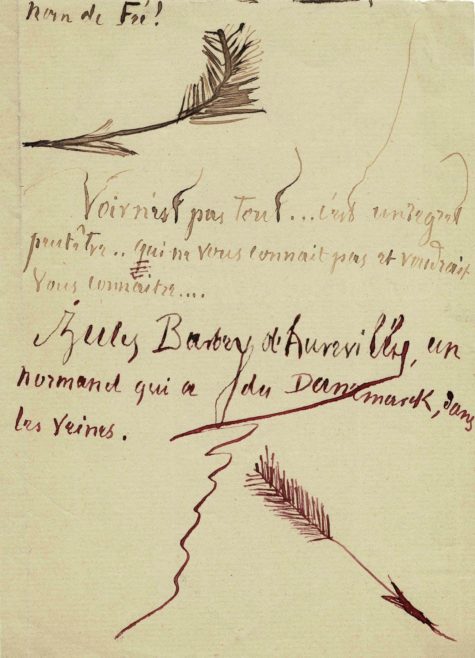 nom de Fé!
Voir n'est pas tout... c'est un regret
peutêtre.. qui ne vous connait pas et voudrait
vous connaitre....
Jules Barbey d'Aurevilly, un
normand qui a du Danemarck, dans
les veines.